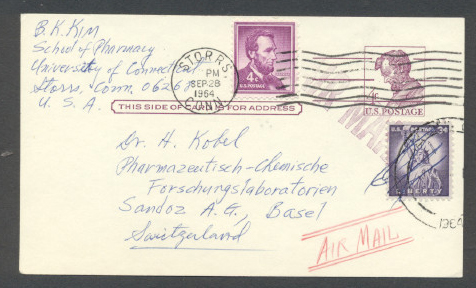 B. K. KIM
School of Pharmacy
University of Connecticut
Storrs, Conn. 06268
U. S. A.
STORRS
PM
SEP 28
1964
CONN.
4¢
U.S. POSTAGE
U.S. POSTAGE
THIS SIDE OF CARD IS FOR ADDRESS
U.S. POSTAGE 3¢
LIBERTY
1964
Dr. H. Kobel
Pharmazeutisch-Chemische
Forschungslaboratorien
Sandoz A.G., Basel
Switzerland
AIR MAIL